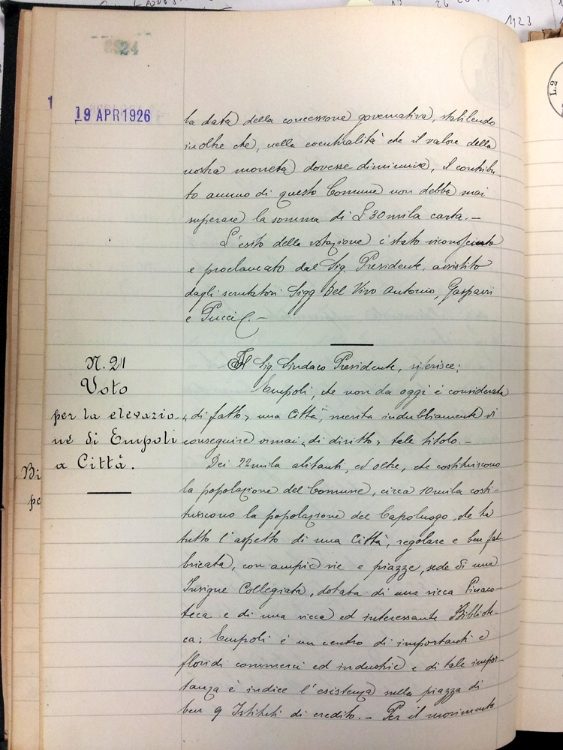 1923
24
19 APR 1926
la data della concessione governativa, stabilendo
inoltre che, nella eventualità che il valore della
nostra moneta dovesse diminuire, il contribu
to annuo di questo Comune non debba mai
superare la somma di £ 30 mila carta. -
L'esito della votazione è stato riconosciuto
e proclamato dal Sig. Presidente, assistito
dagli scrutatori Sigg Del Vivo Antonio, Gasparri
e Pucci C. -
N. 21
Voto
per la elevazio
ne di Empoli
a Città.
Il Sig. Sindaco Presidente, riferisce:
Empoli, che non da oggi è considerata
di fatto, una Città, merita indubbiamente di
conseguire ormai, di diritto, tale titolo. -
Dei 22 mila abitanti, ed oltre, che costituiscono
la popolazione del Comune, circa 10 mila costi-
tuiscono la popolazione del Capoluogo, che ha
tutto l'aspetto di una Città, regolare e ben fab
bricata, con ampie vie e piazze, sede di una
Insigne Collegiata, dotata di una ricca Pinaco-
teca e di una ricca ed interessante Bibliote-
ca; Empoli è un centro di importanti e
floridi commerci ed industrie e di tale impor-
tanza è indice l'esistenza nella piazza di
ben 9 Istituti di credito. - Per il movimento
Bi
pe
L.2